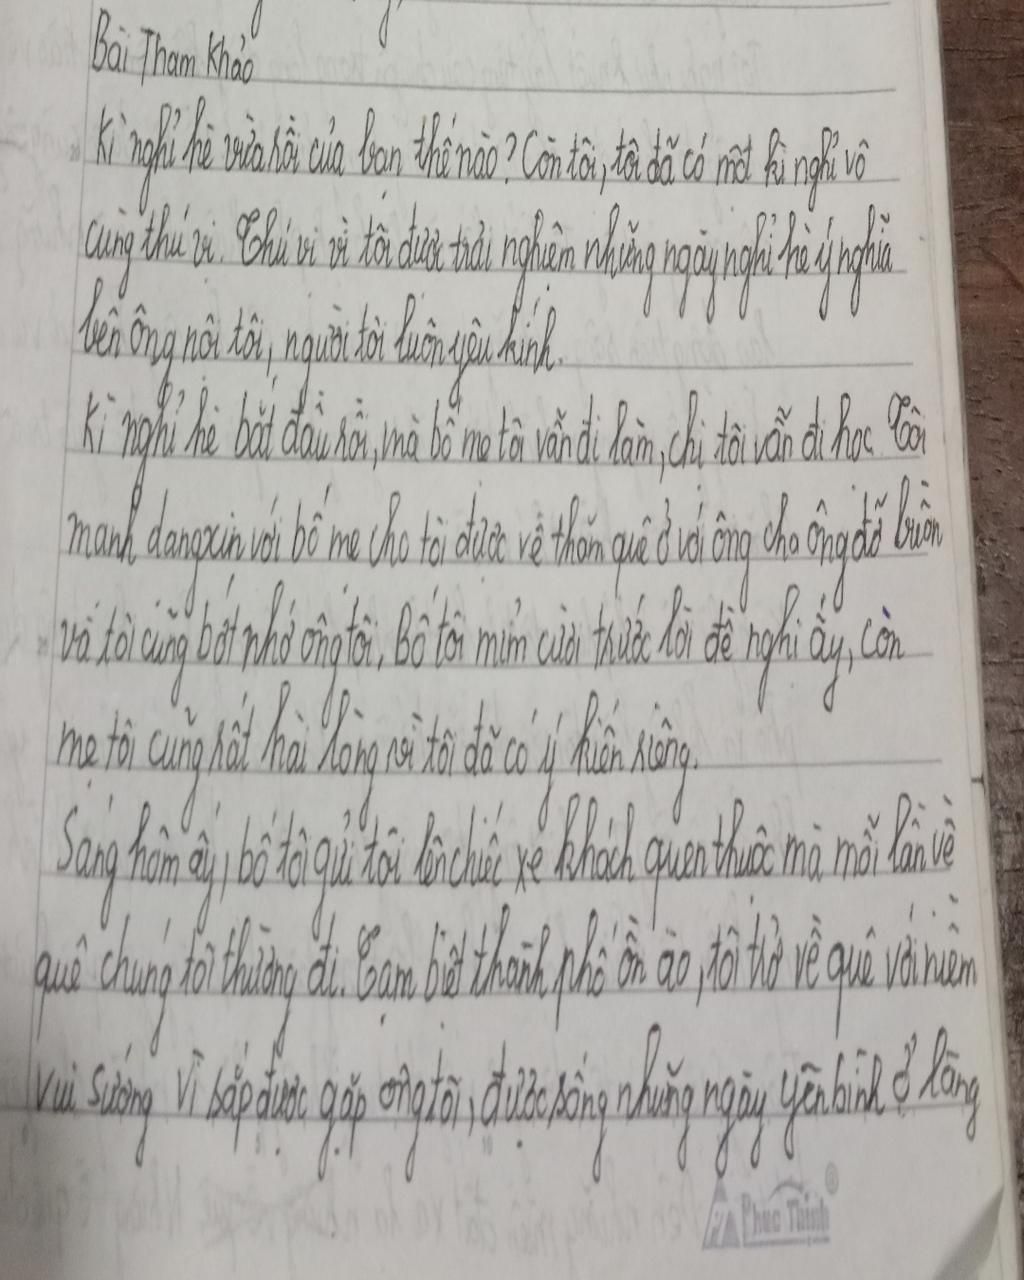 Bài Tham Khảo
Kì nghỉ hè vừa rồi của bạn thế nào? Còn tôi, tôi đã có một kì nghỉ vô
cùng thú vị. Thú vị vì tôi được trải nghiệm những ngày nghỉ hè ý nghĩa
bên ông nội tôi, người tôi luôn yêu kính.
Kì nghỉ hè bắt đầu rồi, mà bố mẹ tôi vẫn đi làm, chị tôi vẫn đi học. Tôi
mạnh dạng xin với bố mẹ cho tôi được về thăm quê ở với ông cho ông đỡ buồn
và tôi cũng bớt nhớ ông tôi. Bố tôi mỉm cười trước lời đề nghị ấy, còn
mẹ tôi cũng rất hài lòng vì tôi đã có ý kiến riêng.
Sáng hôm ấy, bố tôi gửi tôi lên chiếc xe khách quen thuộc mà mỗi lần về
quê chúng tôi thường đi. Tạm biệt thành phố ồn ào, tôi trở về quê với niềm
vui sướng vì sắp được gặp ông tôi, được sống những ngày yên bình ở làng
Phúc Thịnh